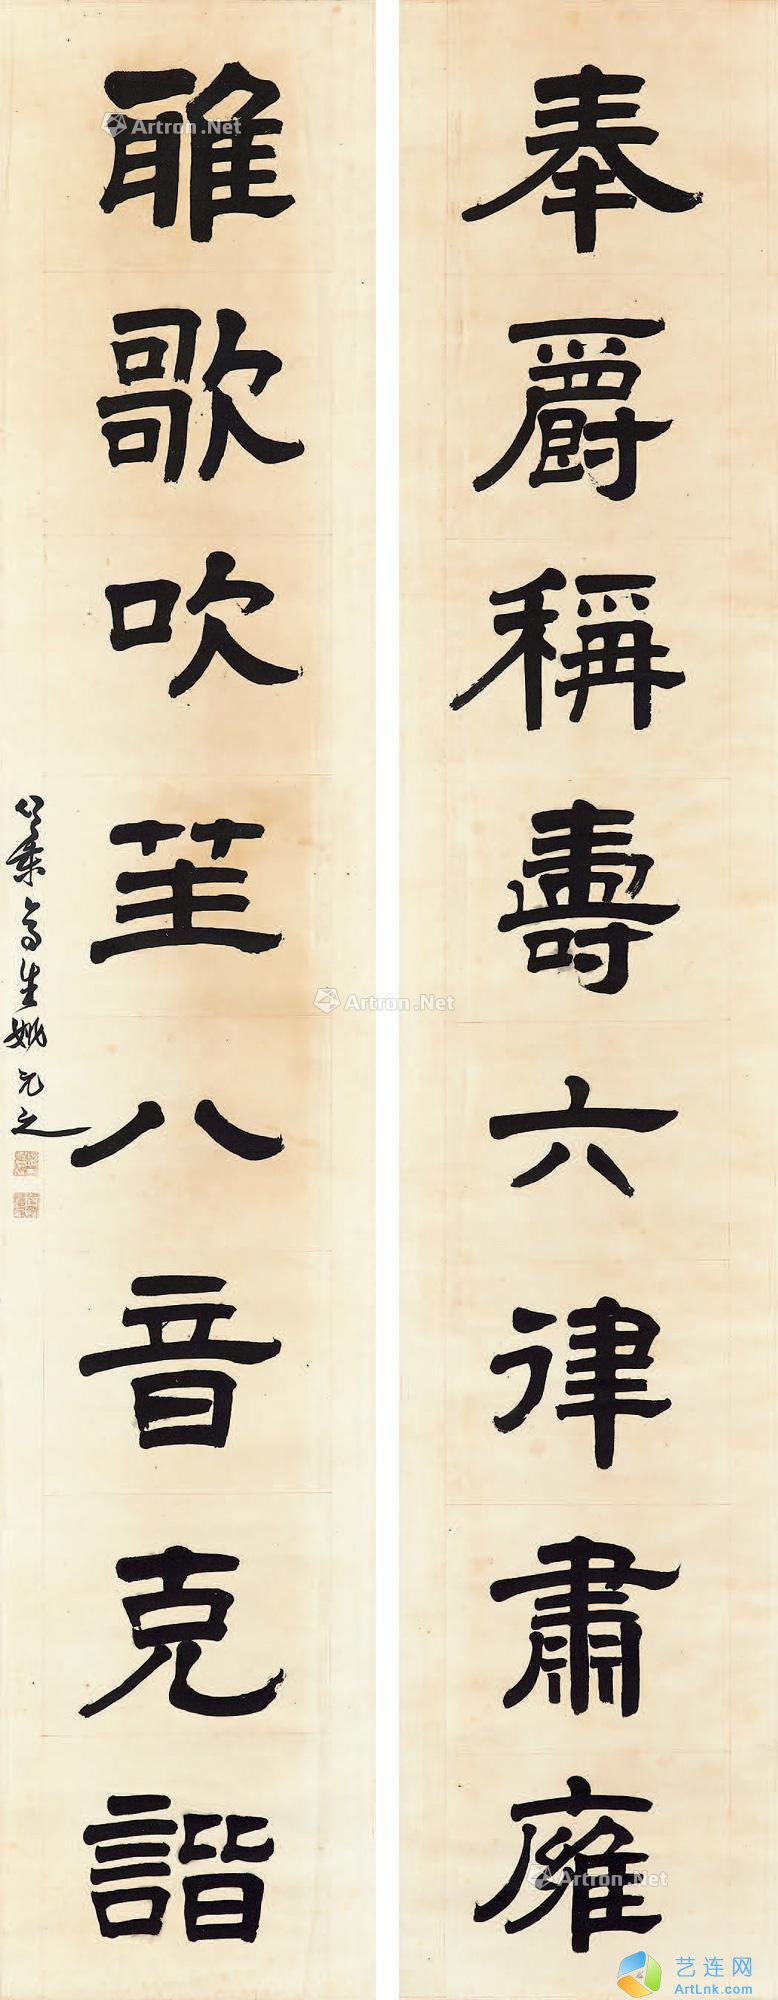 奉爵稱壽六律肅雍
雅歌吹笙八音克諧
竹葉亭生姚元之
Artron.Net
Artron.Net
Artron.Net
艺连网
ArtLnk.com